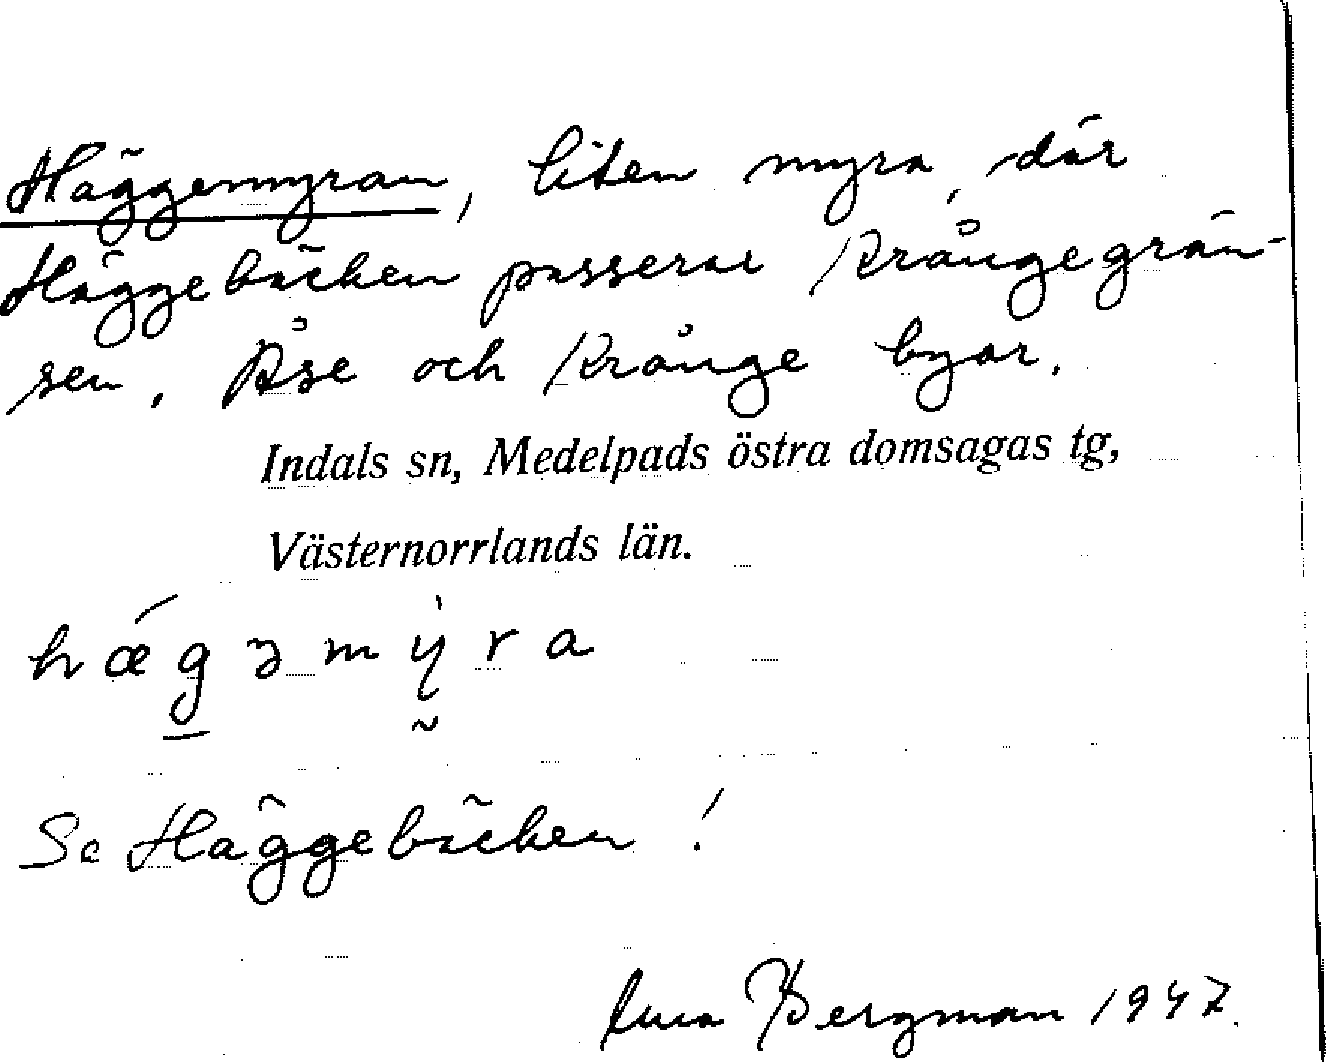 Häggemyran, liten myra, där
Häggebäcken passerar Krångegrän-
sen, Åse och Krånge byar.
Indals sn, Medelpads östra domsagas tg,
Västernorrlands län.
hǽgəmỳra
Se Häggebäcken!
Bergman 1947.